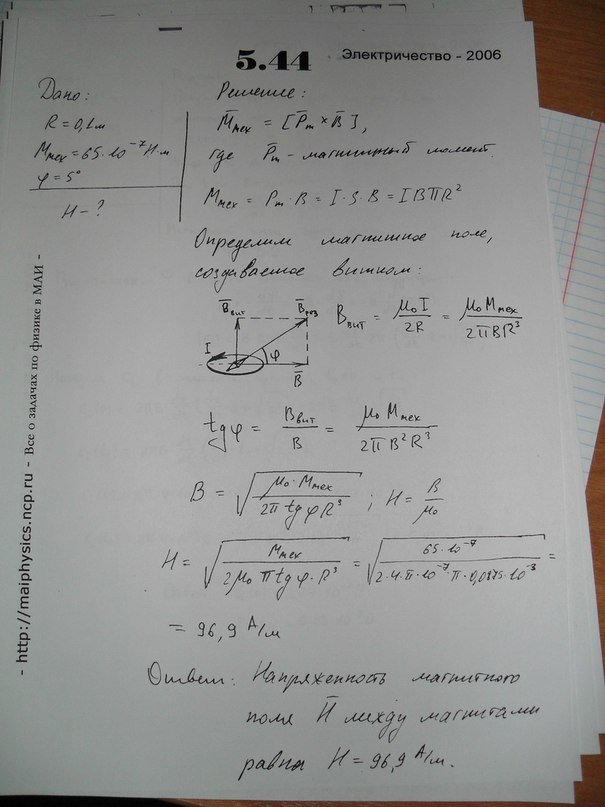 5.44 Электричество - 2006
Дано:
R = 0,1 м
Mмех = 65·10⁻⁷ Н·м
φ = 5°
H - ?
Решение:
M̄мех = [P̄m × B̄],
где P̄m - магнитный момент.
Mмех = Pm·B = I·S·B = IBπR²
Определим магнитное поле,
создаваемое витком:
B̄вит B̄рез
I φ
B̄
Bвит = μ₀I/2R = μ₀Mмех/2πBR³
tgφ = Bвит/B = μ₀Mмех/2πB²R³
B = √(μ₀·Mмех/2π tgφ R³) ; H = B/μ₀
H = √(Mмех/2μ₀ π tgφ·R³) = √(65·10⁻⁷/2·4·π·10⁻⁷ π·0,0875·10⁻³) =
= 96,9 А/м
Ответ: Напряженность магнитного
поля H̄ между магнитами
равна H = 96,9 А/м.
- http://maiphysics.ncp.ru - Все о задачах по физике в МАИ -